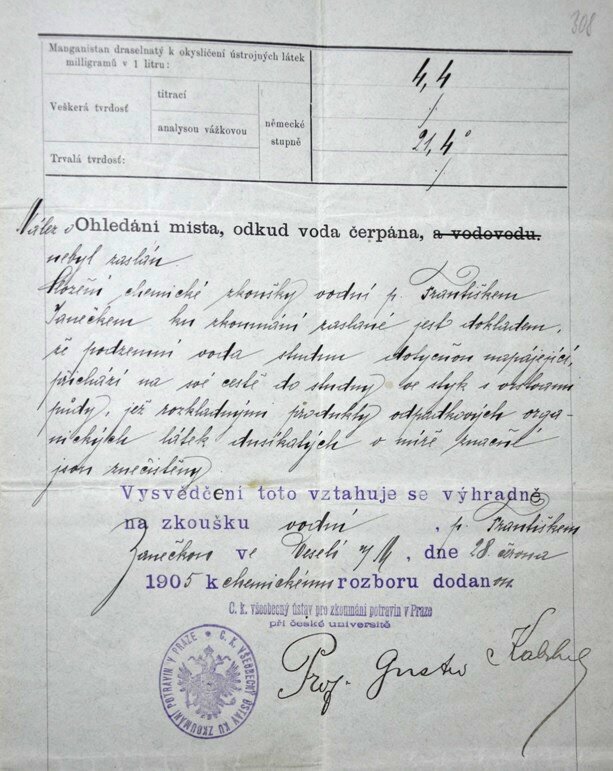 308
Manganistan draselnatý k okysličení ústrojných látek
milligramů v 1 litru:
4,4
Veškerá tvrdost
titrací
/.
analysou vážkovou
německé
stupně
21,4°
Trvalá tvrdost:
/.
Nález o Ohledání místa, odkud voda čerpána, a vodovodu.
nebyl zaslán.
Složení chemické zkoušky vodní p. Františkem
Janečkem ku zkoumání zaslané jest dokladem,
že podzemní voda studni dotyčnou napájející,
přichází na své cestě do studny ve styk s vrstvami
půdy, jež rozkladnými produkty odpadkových orga-
nických látek dusíkatých v míře značné
jsou znečistěny
Vysvědčení toto vztahuje se výhradně
na zkoušku vodní, p. Františkem
Janečkem ve Veselí n/M, dne 28 února
1905 k chemickému rozboru dodanou.
C. k. všeobecný ústav pro zkoumání potravin v Praze
při české universitě
Prof. Gustav
C. K. VŠEOBECNÝ ÚSTAV KU ZKOUMÁNÍ POTRAVIN V PRAZE